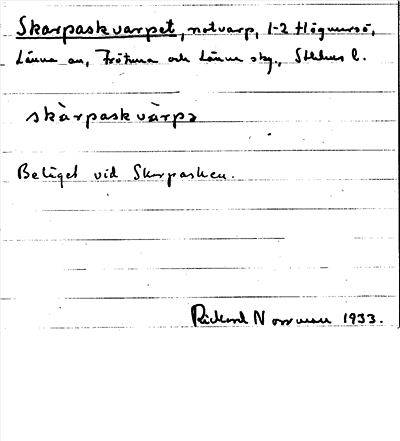 Skarpaskvarpet, notvarp, 1-2 Högmarsö,
Länna sn, Frötuna och Länna skg., Sthlms l.
skàrpaskvàrpə
Beläget vid Skarpasken.
Rickard Norrman 1933.